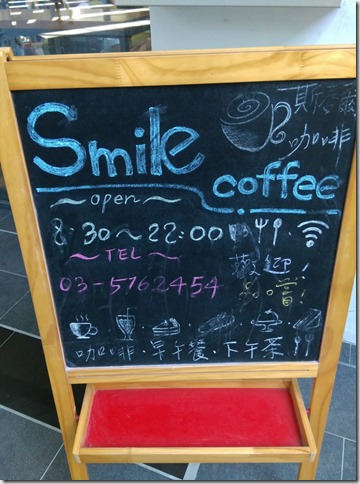 Smile
斯麥爾
咖啡
coffee
～open～
8:30～22:00
～TEL～
歡迎!
03-5762454
品嘗!
咖啡·早午餐·下午茶